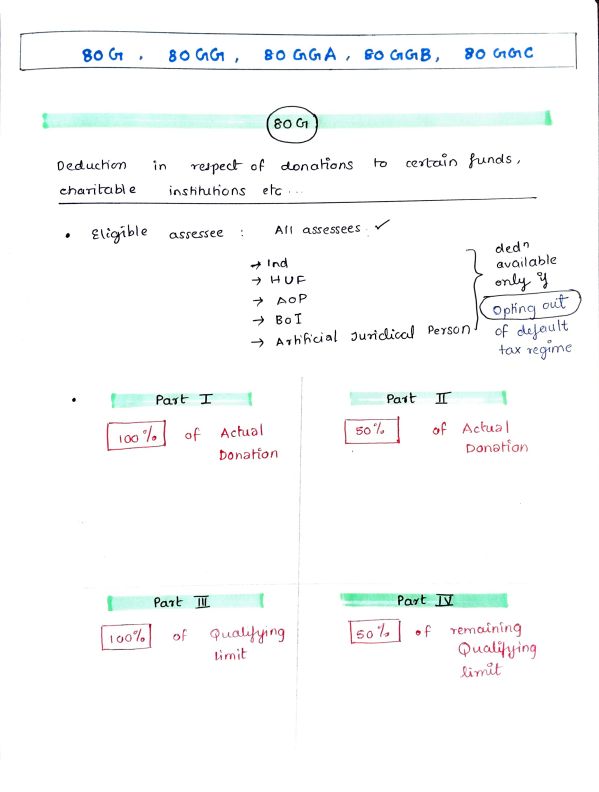 80G, 80GG, 80GGA, 80GGB, 80GGC
80G
Deduction in respect of donations to certain funds,
charitable institutions etc...
• Eligible assessee : All assessees ✓
→ Ind
→ HUF
→ AOP
→ BOI
→ Artificial Juridical Person
dedⁿ
available
only if
Opting out
of default
tax regime
• Part I
100% of Actual
Donation
Part II
50% of Actual
Donation
Part III
100% of Qualifying
limit
Part IV
50% of remaining
Qualifying
limit